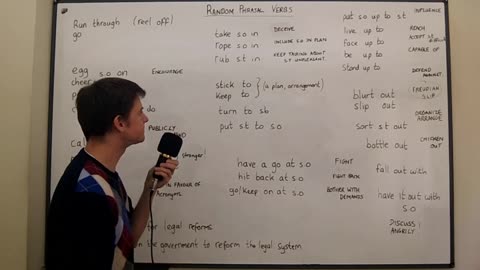 RANDOM PHRASAL VERBS
Run through (reel off)
go
egg s.o on ENCOURAGE
cheer
do
PUBLICLY
(stronger)
IN FAVOUR OF
(Acronym)
for legal reforms
on the government to reform the legal system
take s.o in DECEIVE
rope s.o in INCLUDE S.O IN PLAN
rub s.t in KEEP TALKING ABOUT
S.T UNPLEASANT
stick to
keep to } (a plan, arrangement)
turn to s.b
put s.t to s.o
have a go at s.o FIGHT
hit back at s.o FIGHT BACK
go/keep on at s.o BOTHER WITH
DEMANDS
put s.o up to s.t INFLUENCE
live up to REACH
Face up to ACCEPT
be up to CAPABLE OF
Stand up to DEFEND
AGAINST
blurt out FREUDIAN
slip out SLIP
sort s.t out ORGANIZE
ARRANGE
bottle out CHICKEN
OUT
fall out with
have it out with
s.o
DISCUSS
ANGRILY